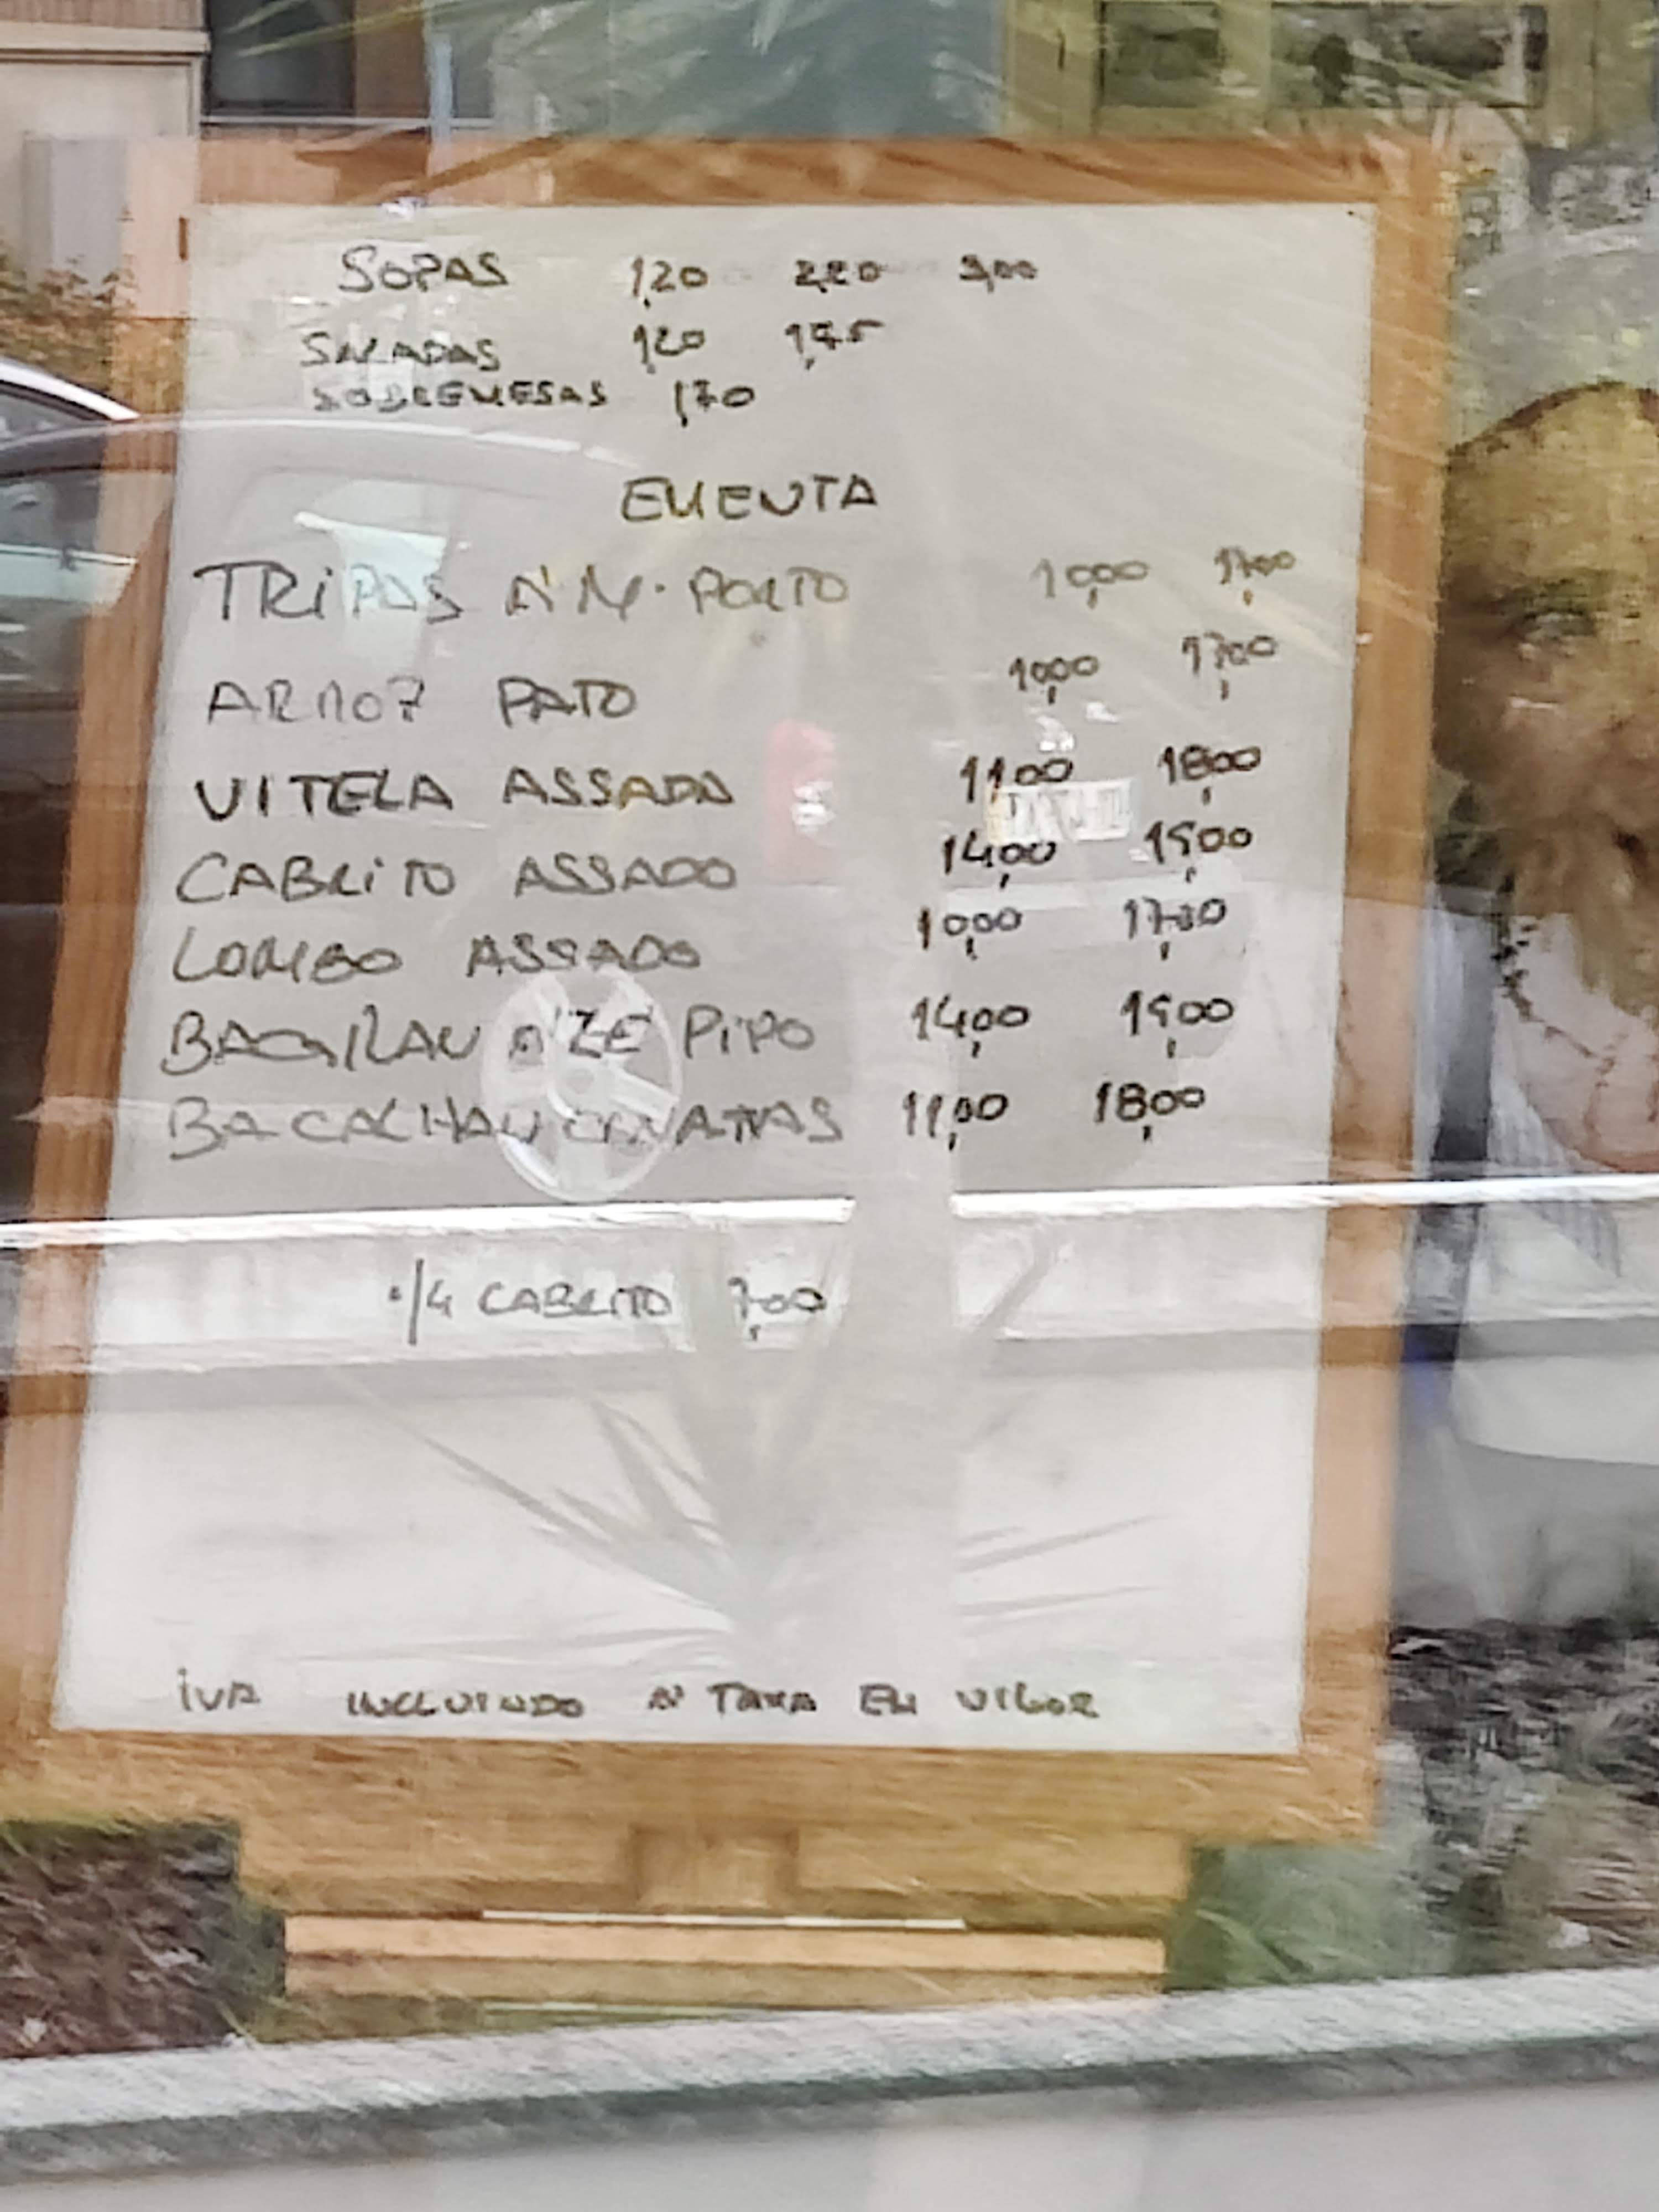 SOPAS 1,20 2,20 3,00
SALADAS 1,20 1,75
SOBREMESAS 1,70
EMENTA
TRIPAS A'M. PORTO 10,00 17,00
ARROZ PATO 10,00 17,00
VITELA ASSADA 11,00 18,00
CABRITO ASSADO 14,00 19,00
LOMBO ASSADO 10,00 17,00
A'ZÉ PIPO 14,00 19,00
BACALHAU C/NATAS 11,00 18,00
1/4 CABRITO 7,00
IVA INCLUINDO A' TAXA EM VIGOR